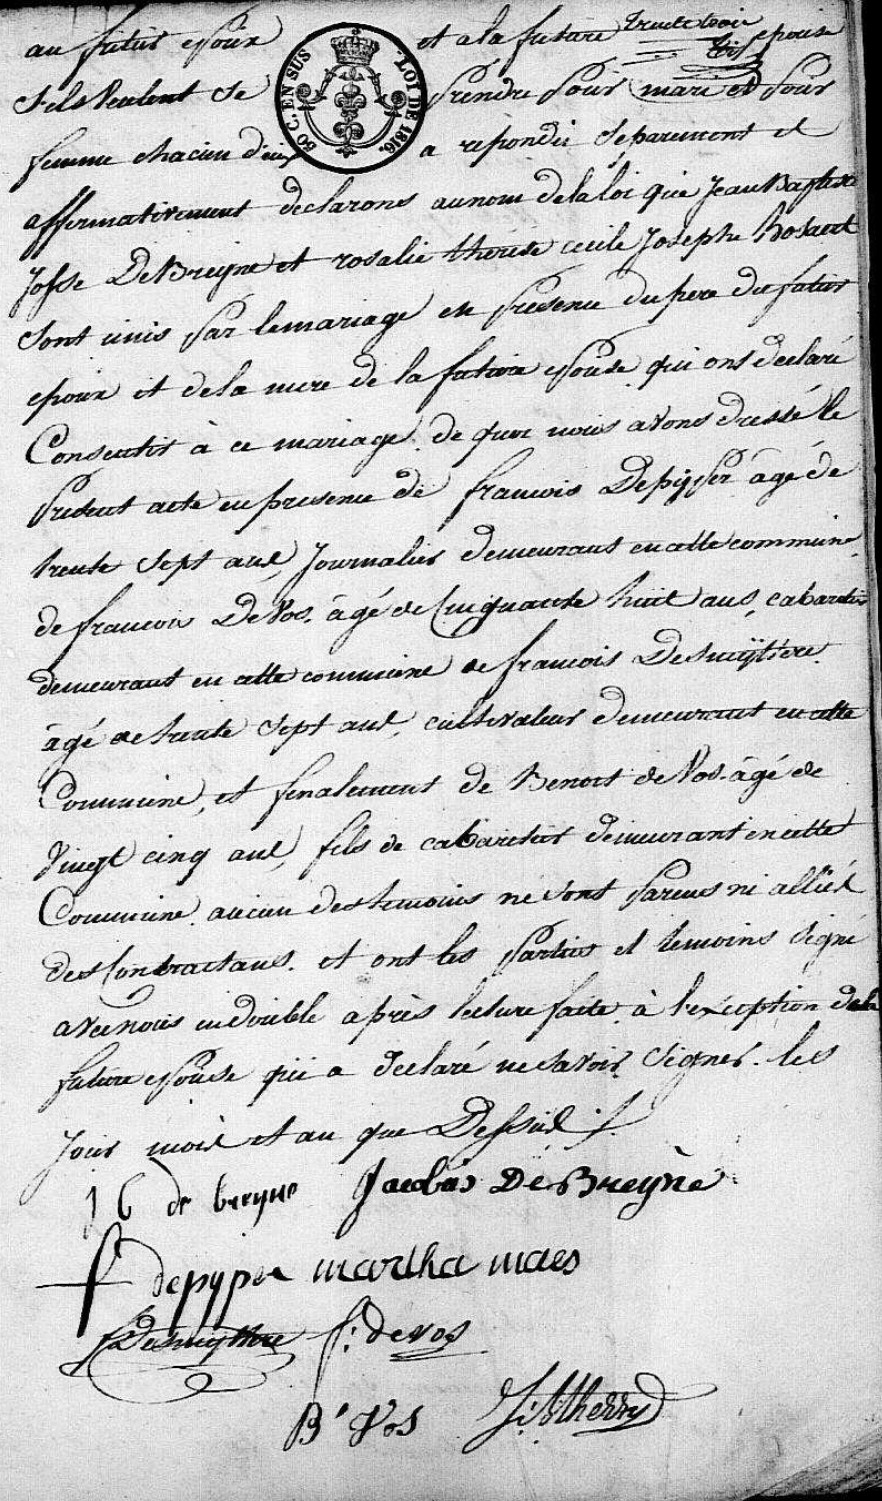 au futur epoux et a la future epouse
s'ils veulent se prendre pour mari et pour
50 C. EN SUS LOI DE 1816.
femme chacun d'eux a repondu separement et
affirmativement declarons au nom de la loi que Jean Baptiste
Josse DeBreyne et rosalie therese cecile Josephe
sont unis par le mariage en presence du pere du futur
epoux et de la mere de la future epouse qui ont declaré
Consentir à ce mariage. de quoi nous avons dressé le
present acte en presence de francois Depyper âgé de
trente sept ans, Journalier demeurant en cette commune,
de francois De Vos. âgé de Cinquante huit ans, cabaretier
demeurant en cette commune de francois Desmyttere.
âgé de trente sept ans, cultivateur demeurant en cette
Commune, et finalement de Benoit de Vos. âgé de
vingt cinq ans, fils de cabaretier demeurant en cette
Commune. aucun des temoins ne sont parens ni alliés
des Contractans. et ont les parties et temoins signé
avec nous en double après lecture faite. à l'exception de la
future epouse qui a declaré ne savoir signer. les
jour mois et an que Dessus /.
J b de breyne Jacobus De Breyne
f depyper martha maes
Desmyttere f: devos
B' Vos